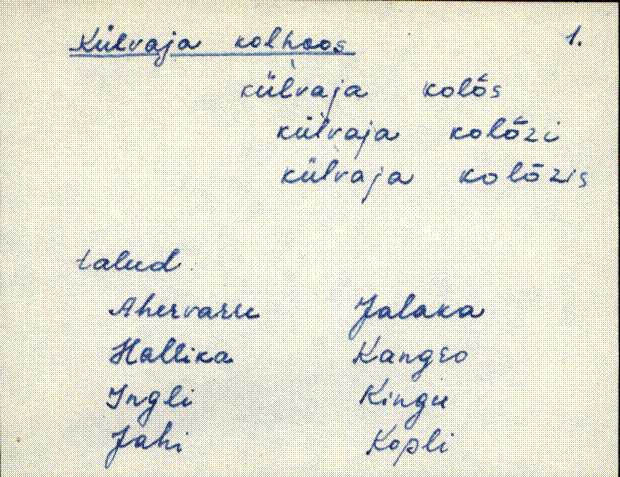 Külvaja kolhoos 1.
külvaja kolōs
külvaja kolōzi
külvaja kolōzis
talud
Ahervarre Jalaka
Hallika Kangro
Ingli Kingu
Jahi Kopli